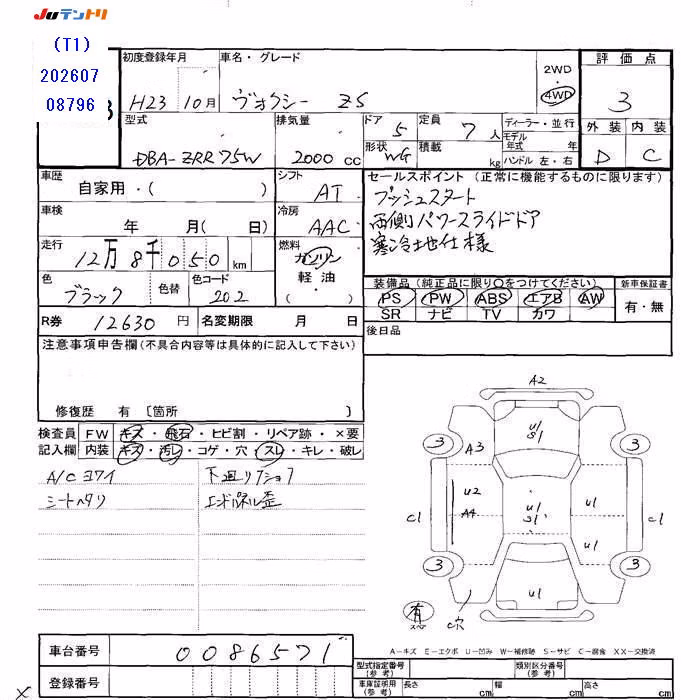 JUテントリ
(T1)
202607
08796
3
初度登録年月
H23 10月
車名・グレード
ヴォクシー ZS
2WD
・
4WD
評価点
3
外装 内装
D C
型式
DBA-ZRR75W
排気量
2000 cc
ドア 5
形状 WG
定員 7 人
積載 kg
ディーラー・並行
モデル年式 年
ハンドル 左・右
車歴
自家用・( )
シフト
AT
車検
年 月( 日)
冷房
AAC
走行
12万8千050 km
燃料
ガソリン
軽油
( )
色
ブラック
色替
色コード
202
セールスポイント(正常に機能するものに限ります)
プッシュスタート
両側パワースライドドア
寒冷地仕様
装備品(純正品に限り○をつけてください)
PS PW ABS エアB AW
SR ナビ TV カワ
新車保証書
有・無
R券 12630 円
名変期限 月 日
後日品
注意事項申告欄(不具合内容等は具体的に記入して下さい)
修復歴 有 〔箇所 〕
検査員 FW キズ・飛石・ヒビ割・リペア跡・×要
記入欄 内装 キズ・汚レ・コゲ・穴・スレ・キレ・破レ
A/Cヨワイ
シートヘタリ
下廻リクショク
エンドパネル歪
A2
U1
S1
3
3
A3
U2
A4
U1
S1
U1
U1
C1
C1
3
3
U1
有
C穴
A-キズ E-エクボ U-凹み W-補修跡 S-サビ C-腐食 XX-交換済
車台番号
0086571
登録番号
型式指定番号(参考)
類別区分番号(参考)
車庫証明用(参考) 長さ cm 幅 cm 高さ cm
×